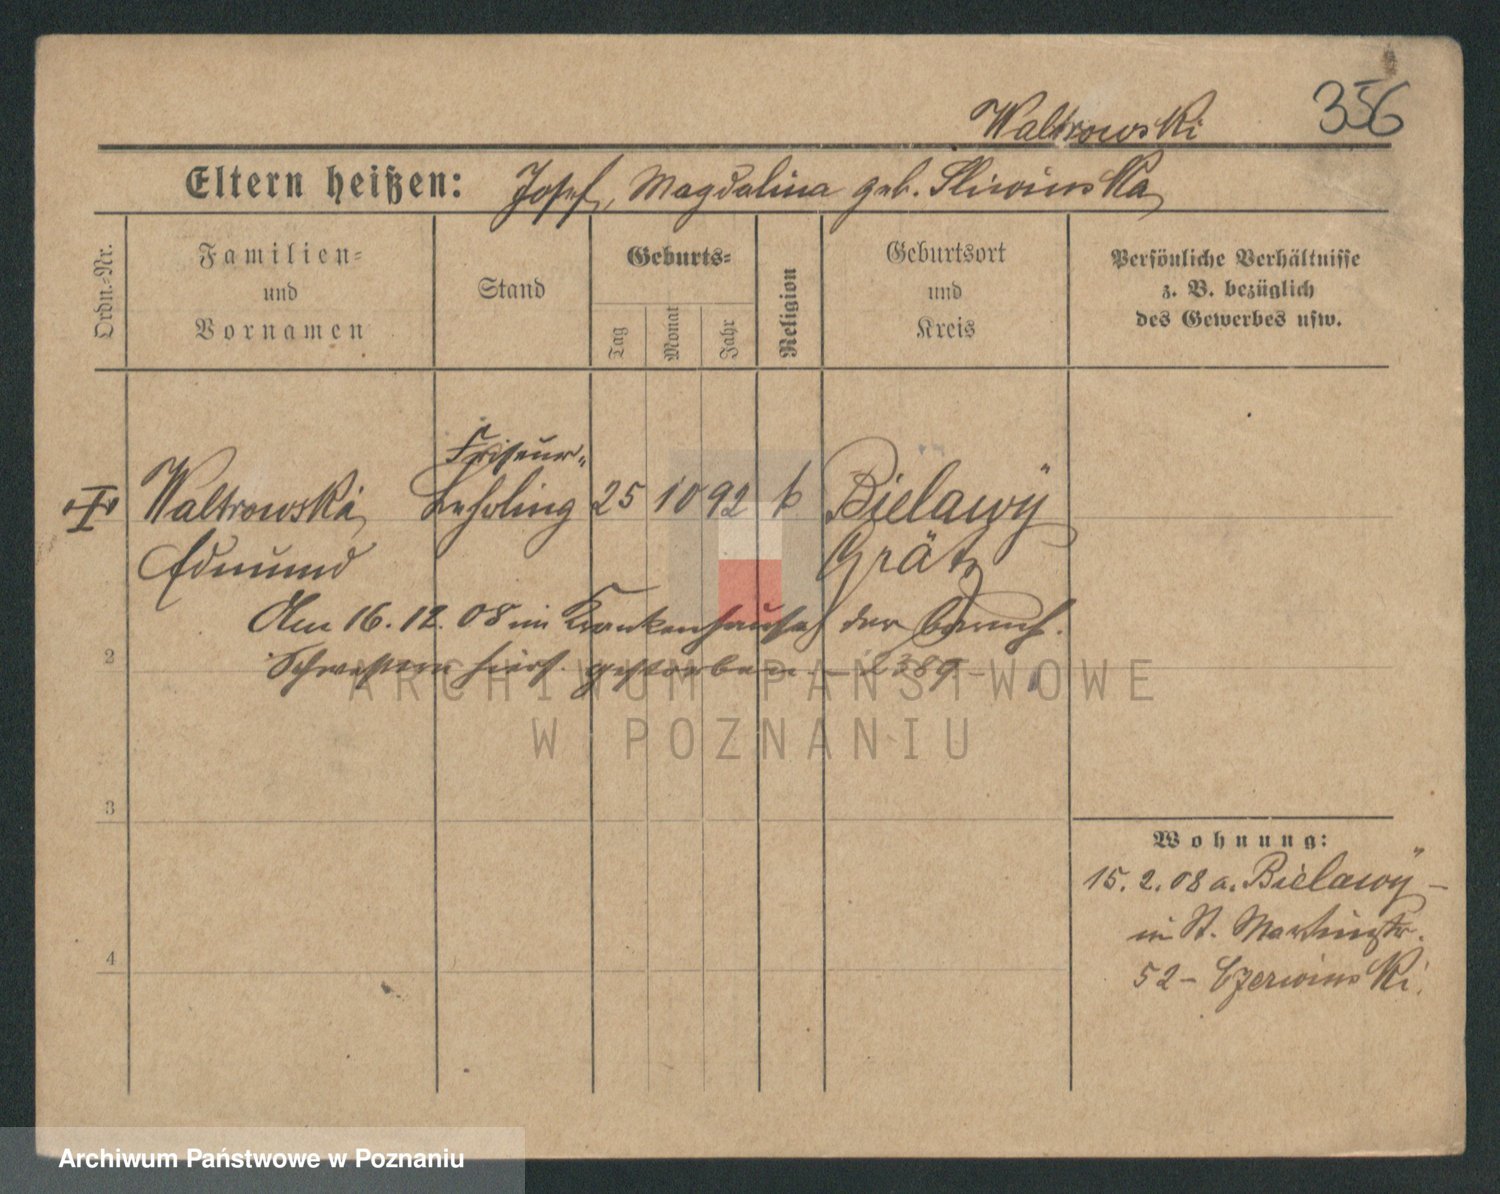 356
Waltrowski
Eltern heißen: Josef, Magdalina geb. Sliwinska
Ordn.-Nr.
Familien-
und
Vornamen
Stand
Geburts-
Tag
Monat
Jahr
Religion
Geburtsort
und
Kreis
Persönliche Verhältnisse
z. B. bezüglich
des Gewerbes usw.
Friseur-
Waltrowski Lehrling 25 10 92 k Bielawÿ
Edmund Grätz
Am 16. 12. 08 im Krankenhause der barmh.
2 Schwestern hiers. gestorben. - 2389 -
3
4
Wohnung:
15. 2. 08 a. Bielawÿ -
in St. Martinstr.
52 - Czerwinski.
ARCHIWUM PAŃSTWOWE
W POZNANIU
Archiwum Państwowe w Poznaniu